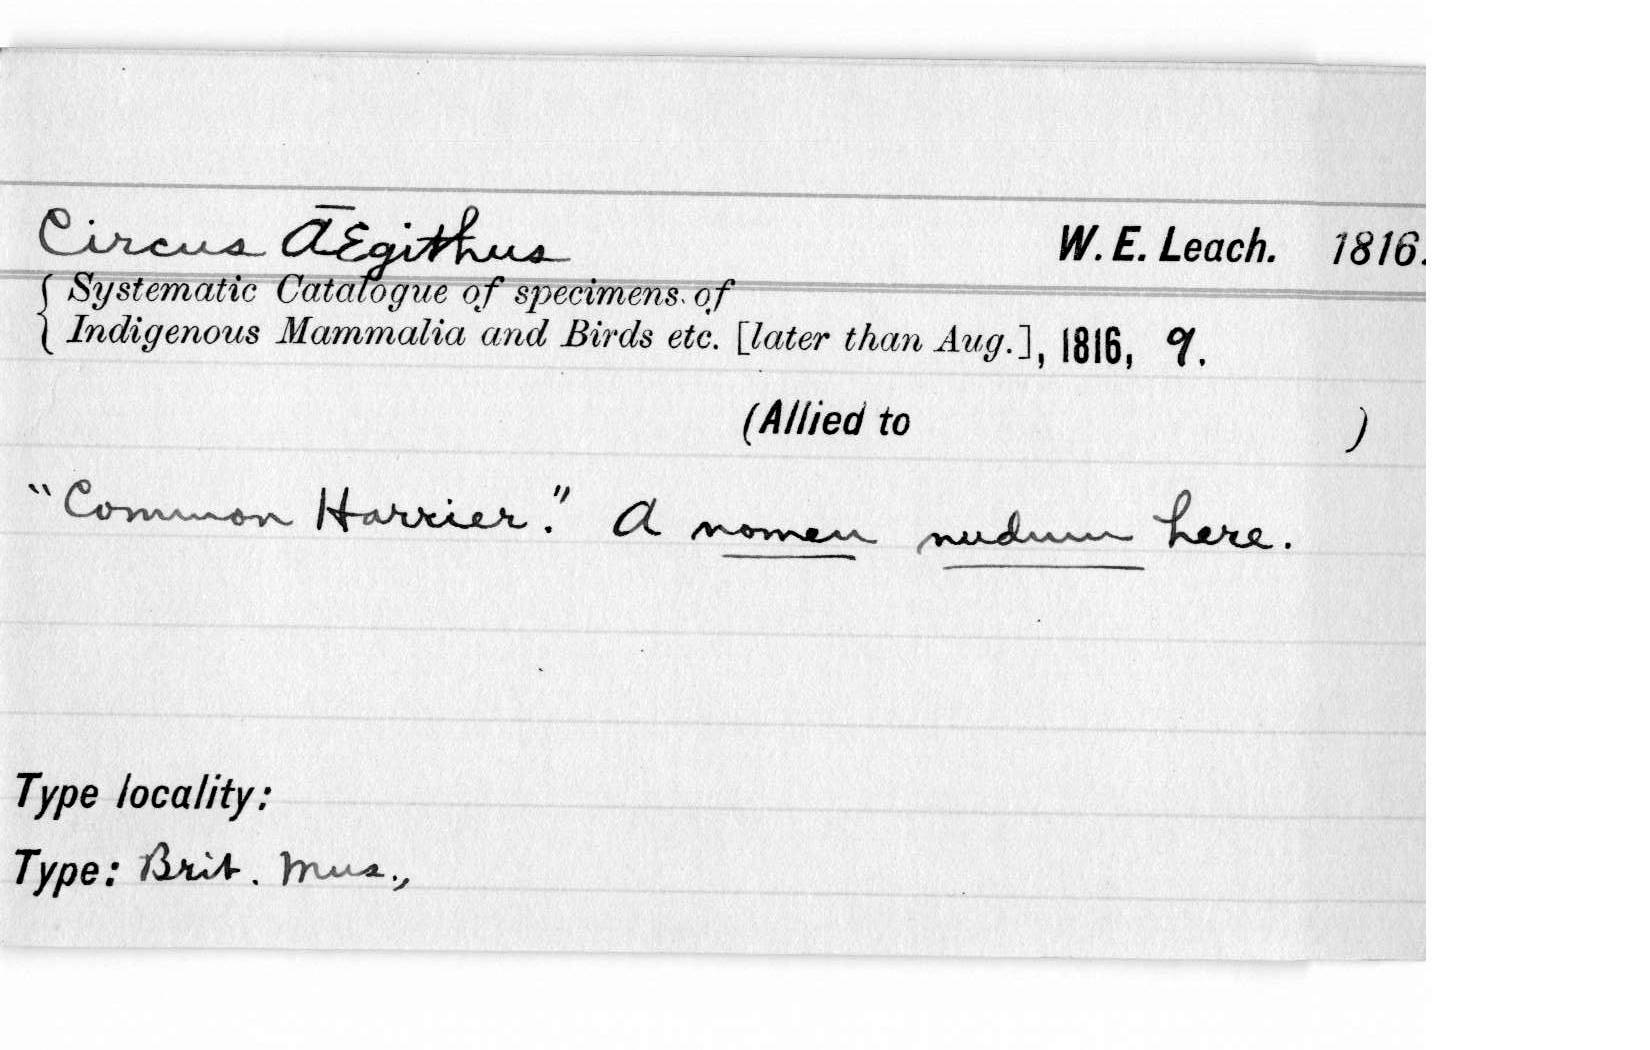 Circus Ægithus W. E. Leach. 1816.
{ Systematic Catalogue of specimens of
Indigenous Mammalia and Birds etc. [later than Aug.], 1816, 9.
(Allied to )
"Common Harrier." A nomen nudum here.
Type locality:
Type: Brit. Mus.,